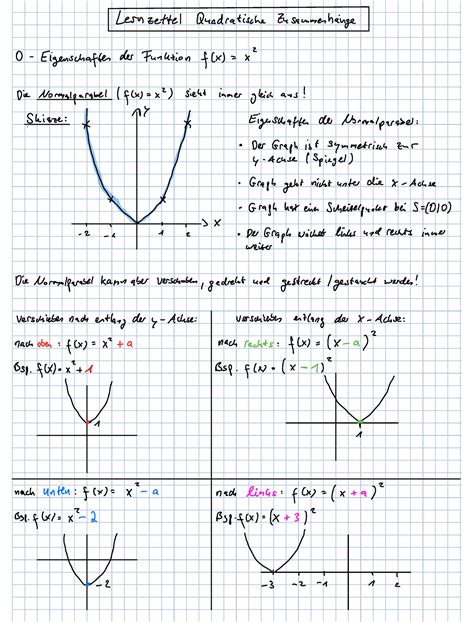 Lernzettel Quadratische Zusammenhänge
0 - Eigenschaften der Funktion f(x) = x²
Die Normalparabel (f(x) = x²) sieht immer gleich aus!
Skizze:
y
x
-2 -1 1 2
Eigenschaften der Normalparabel:
• Der Graph ist symmetrisch zur
y-Achse (Spiegel)
• Graph geht nicht unter die x-Achse
• Graph hat ein Scheitelpunkt bei S=(0|0)
• Der Graph wächst links und rechts immer
weiter
Die Normalparabel kann aber verschoben, gedreht und gestreckt/gestaucht werden!
Verschieben nach entlang der y-Achse:
nach oben: f(x) = x² + a
Bsp. f(x) = x² + 1
1
verschieben entlang der x-Achse:
nach rechts: f(x) = (x - a)²
Bsp. f(x) = (x - 1)²
1
nach unten: f(x) = x² - a
Bsp. f(x) = x² - 2
-2
nach links: f(x) = (x + a)²
Bsp. f(x) = (x + 3)²
-3 -2 -1 1 2